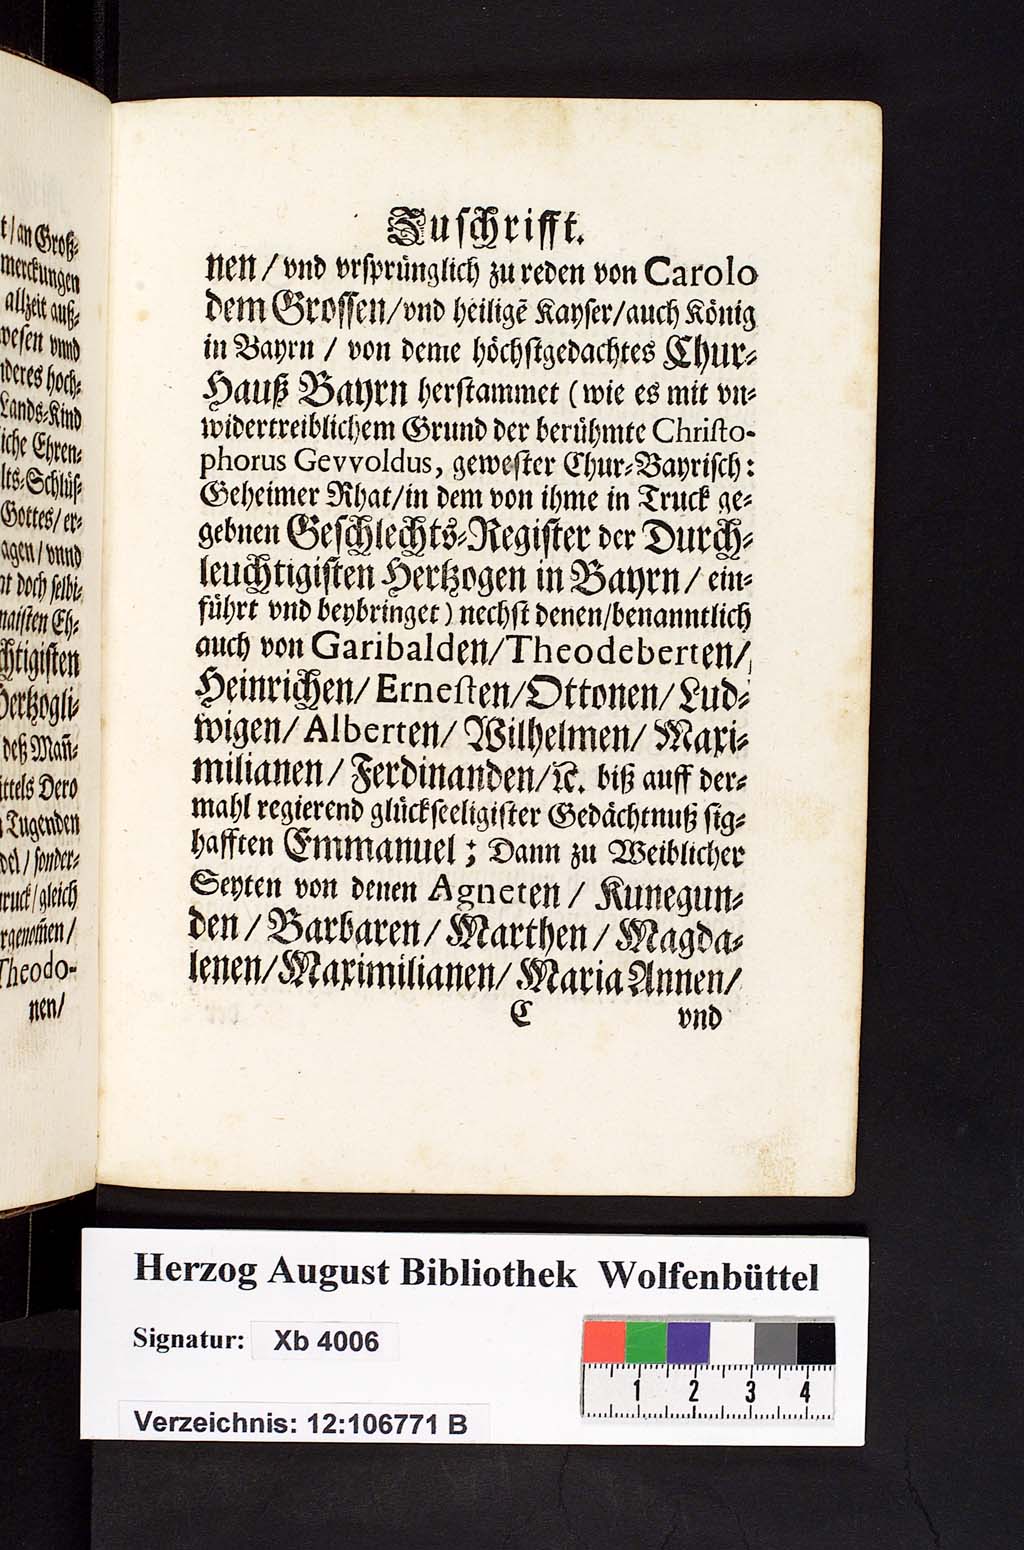 t / an Groß-
merckungen
allzeit auß-
wesen vnnd
nderes hoch-
Lands-Kind
iche Ehren-
lts-Schlüs-
Gottes / er-
agen / vnnd
nt doch selbi-
naisten Eh-
chtigisten
Hertzogli-
deß Mañ-
ittels Dero
Tugenden
del / sonder-
ruck / gleich
rgenom̃en /
Theodo-
nen /
Zuschrifft.
nen / vnd vrsprünglich zu reden von Carolo
dem Grossen / vnd heiligẽ Kayser / auch König
in Bayrn / von deme höchstgedachtes Chur-
Hauß Bayrn herstammet (wie es mit vn-
widertreiblichem Grund der berühmte Christo-
phorus Gevvoldus, gewester Chur-Bayrisch:
Geheimer Rhat / in dem von ihme in Truck ge-
gebnen Geschlechts-Register der Durch-
leuchtigisten Hertzogen in Bayrn / ein-
führt vnd beybringet) nechst denen / benanntlich
auch von Garibalden / Theodeberten /
Heinrichen / Ernesten / Ottonen / Lud-
wigen / Alberten / Wilhelmen / Maxi-
milianen / Ferdinanden / ꝛc. biß auff der-
mahl regierend glückseeligister Gedächtnuß sig-
hafften Emmanuel; Dann zu Weiblicher
Seyten von denen Agneten / Kunegun-
den / Barbaren / Marthen / Magda-
lenen / Maximilianen / Maria Annen /
C vnd
Herzog August Bibliothek Wolfenbüttel
Signatur: Xb 4006
1 2 3 4
Verzeichnis: 12:106771 B